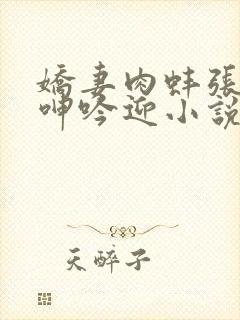 嬌妻肉蚌張
呻吟迎小說
天醉子